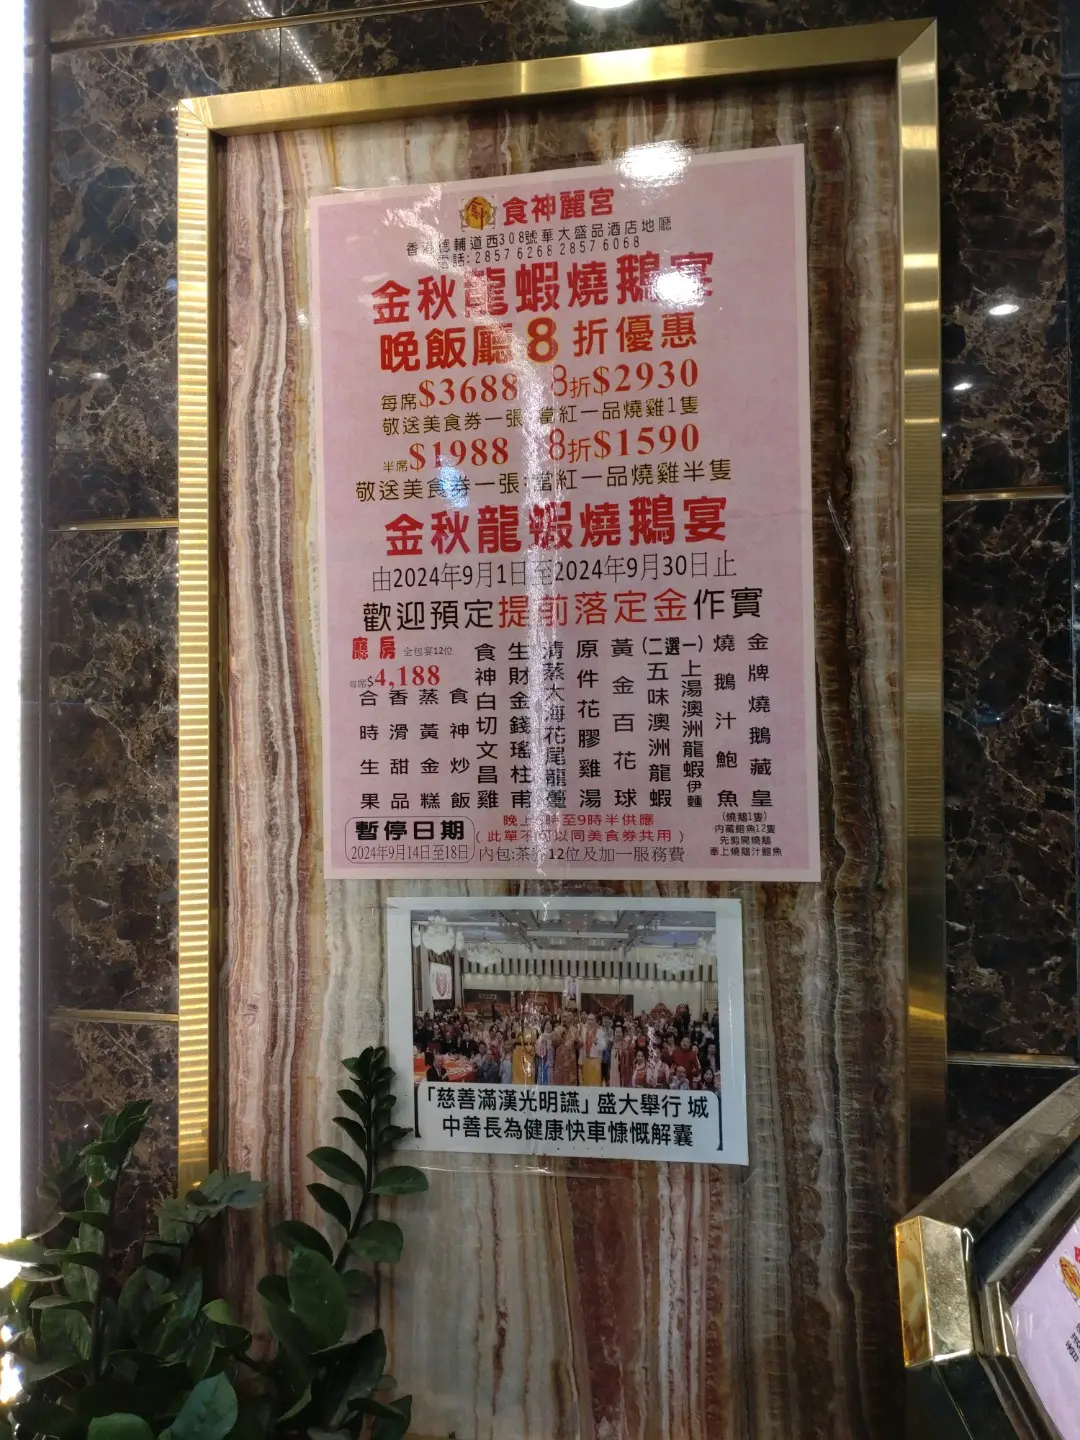 食神麗宮
香港德輔道西308號華大盛品酒店地廳
電話:2857 6268 2857 6068
金秋龍蝦燒鵝宴
晚飯廳8折優惠
每席$3688 8折$2930
敬送美食券一張,當紅一品燒雞1隻
半席$1988 8折$1590
敬送美食券一張,當紅一品燒雞半隻
金秋龍蝦燒鵝宴
由2024年9月1日至2024年9月30日止
歡迎預定提前落定金作實
金牌燒鵝藏皇
燒鵝汁鮑魚
(燒鵝1隻)
內藏鮑魚12隻
先剪開燒鵝
奉上燒鵝汁鮑魚
(二選一)
上湯澳洲龍蝦伊麵
五味澳洲龍蝦
黃金百花球
原件花膠雞湯
清蒸大海花尾龍躉
生財金錢瑤柱甫
食神白切文昌雞
廳房 全包宴12位
每席$4,188
食神炒飯
蒸黃金糕
香滑甜品
合時生果
暫停日期
2024年9月14日至18日
晚上 時至9時半供應
(此單不可以同美食券共用)
內包:茶芥12位及加一服務費
「慈善滿漢光明讌」盛大舉行 城
中善長為健康快車慷慨解囊